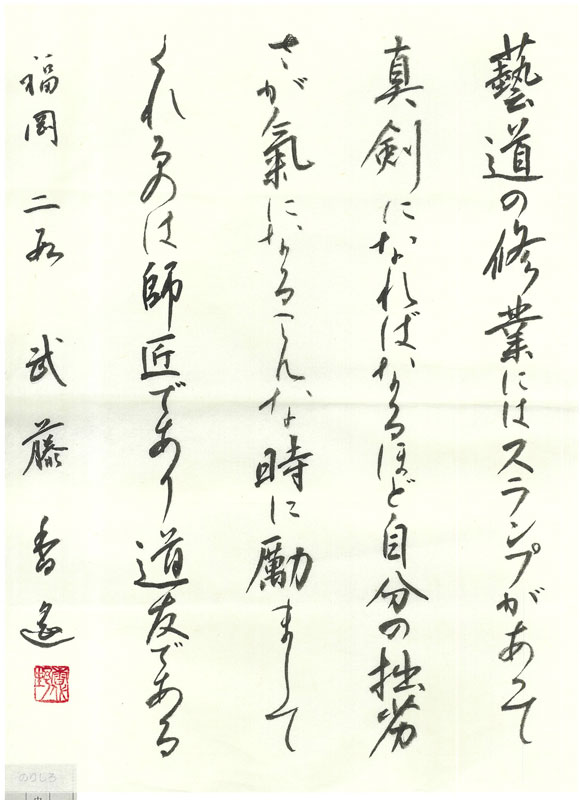 藝道の修業にはスランプがあって
真剣になればなるほど自分の拙劣
さが氣になるこんな時に勵まして
くれるのは師匠であり道友である
福岡 二 武藤 香
のりしろ